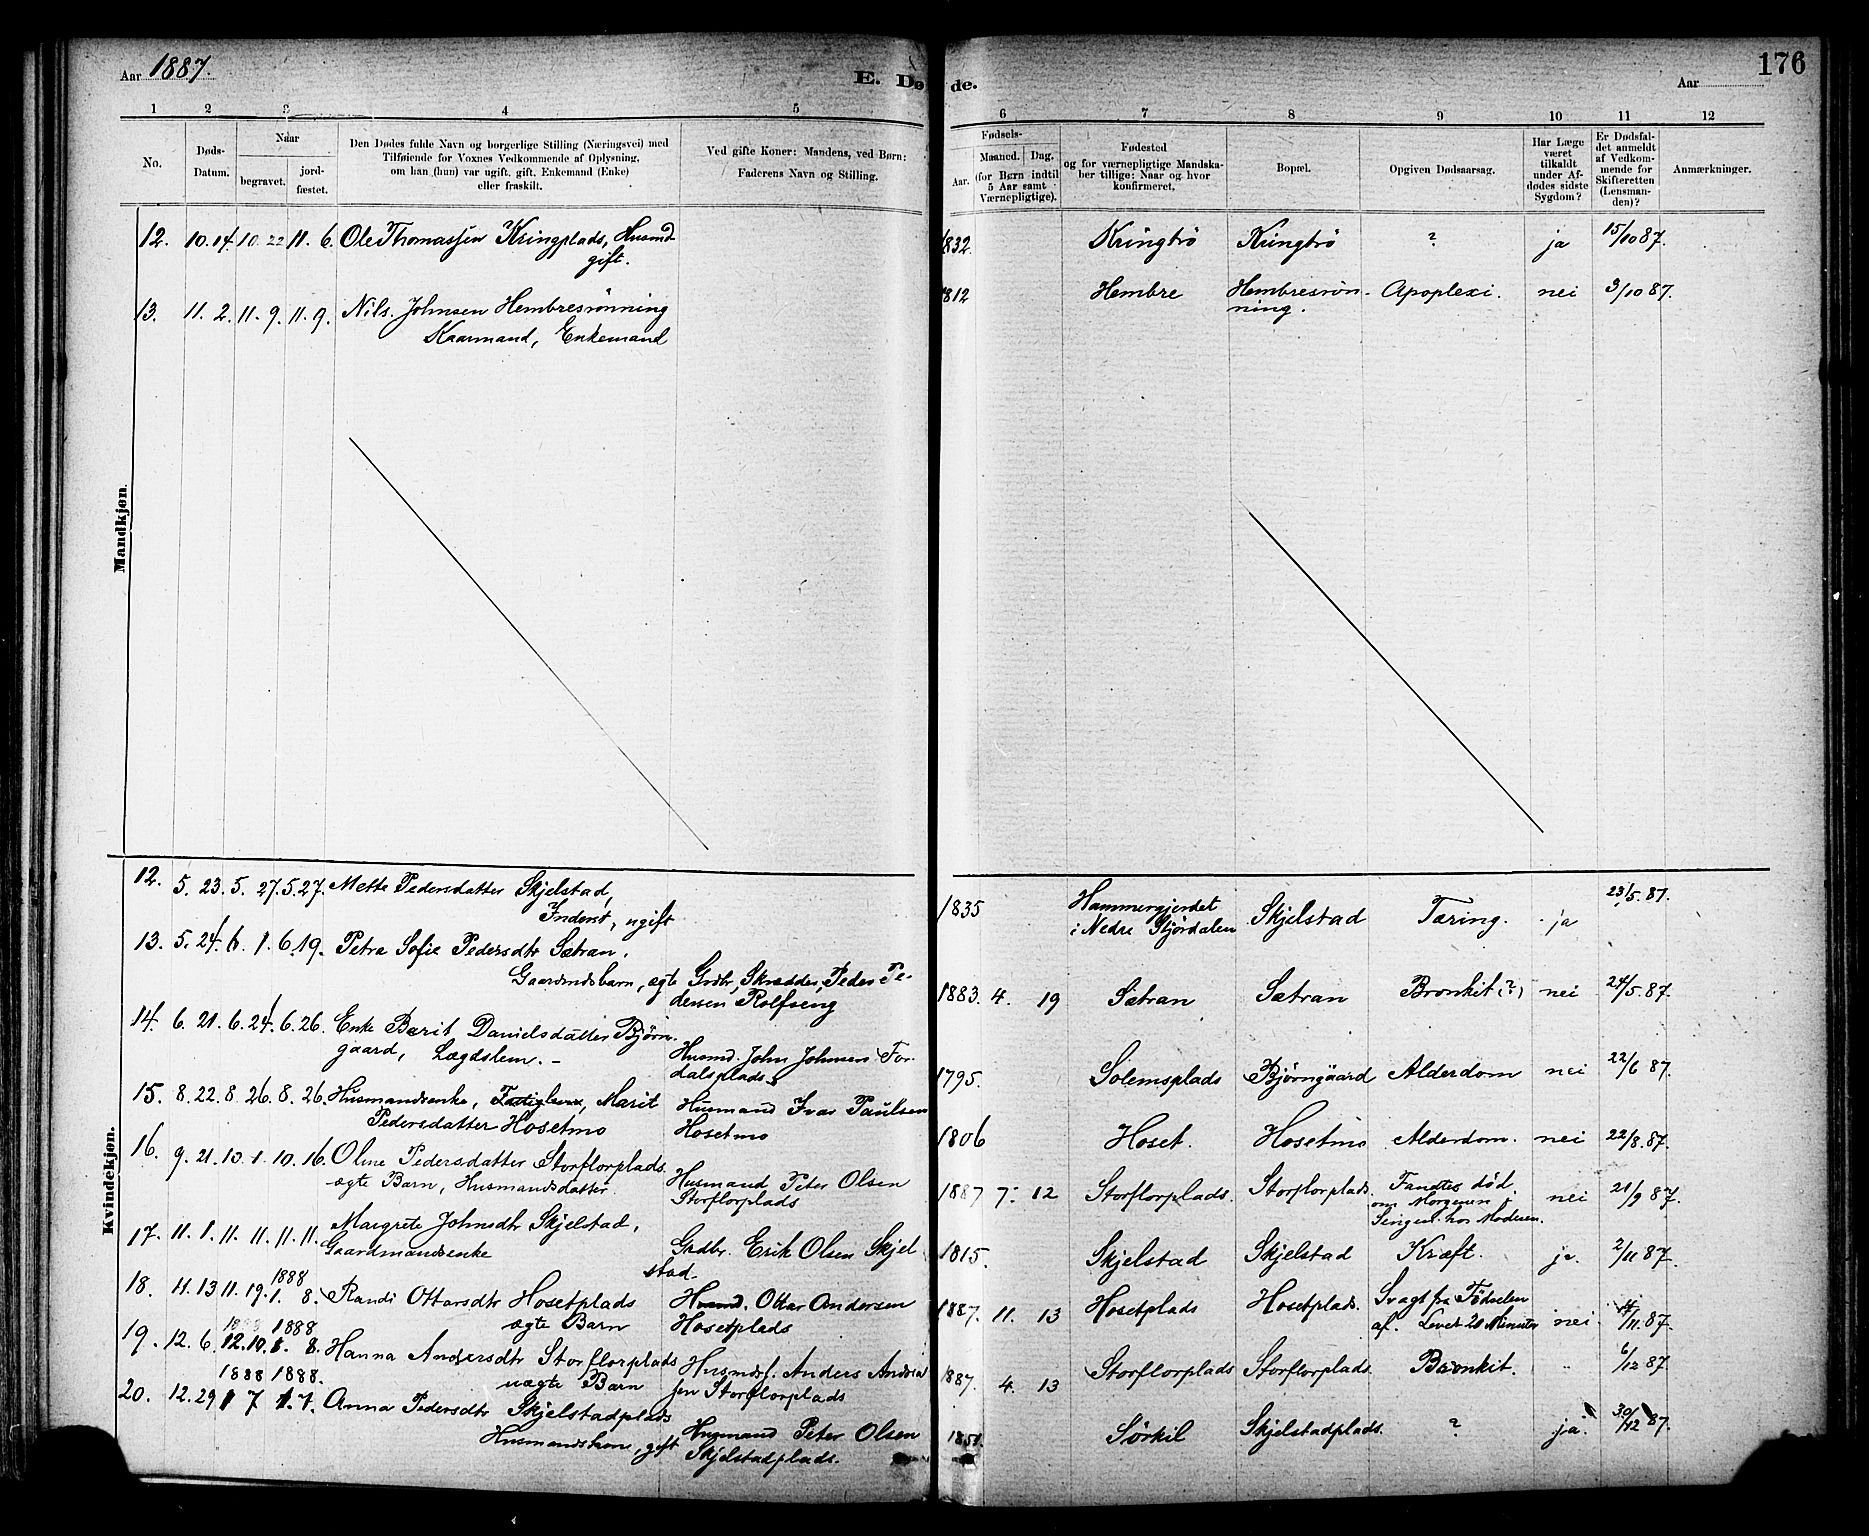 Aar 1887.
E. Dø
de.
Aar
176
1 2 3 4 5 6 7 8 9 10 11 12
No.
Døds-
Datum.
Naar
begravet.
jord-
fæstet.
Den Dødes fulde Navn og borgerlige Stilling (Næringsvei) med
Tilføiende for Voxnes Vedkommende af Oplysning,
om han (hun) var ugift, gift, Enkemand (Enke)
eller fraskilt.
Ved gifte Koner: Mandens, ved Børn:
Faderens Navn og Stilling.
Fødsels-
Aar.
Maaned. Dag.
(for Børn indtil
5 Aar samt
Værnepligtige).
Fødested
og for værnepligtige Mandska-
ber tillige: Naar og hvor
konfirmeret.
Bopæl.
Opgiven Dødsaarsag.
Har Læge
været
tilkaldt
under Af-
dødes sidste
Sygdom?
Er Dødsfal-
det anmeldt
af Vedkom-
mende for
Skifteretten
(Lensman-
den)?
Anmærkninger.
Mandkjøn.
12. 10. 14. 10. 22 11. 6. Ole Thomassen Kringplads, Husmd 1832 Kringbrö Kringbrö ? ja 15/10 87.
gift.
13. 11. 2. 11. 9. 11. 9. Nils Johnsen Hembresrönning 1812 Hembre Hembresrön- Apoplexi. nei 3/10 87.
Kaarmand, Enkemand ning.
Kvindekjøn.
12. 5. 23. 5. 27. 5. 27. Mette Pedersdatter Skjelstad, 1835 Hammergjerdet Skjelstad Tæring. ja 23/5. 87.
Inderst, ugift i Nedre Stjørdalen
13. 5. 24. 6. 1. 6. 19. Petra Sofie Pedersdtr Sætran.
Gaardmdsbarn, ægte Grdbr, Skrædder, Peder Pe- 1883. 4. 19 Sætran Sætran Bronkit (?) nei 24/5. 87.
dersen Rolfseng
14. 6. 21. 6. 24. 6. 26. Enke Berit Danielsdatter Bjørn-
gaard, Lægdslem. - Husmd. John Johnsen For- 1795. Solemsplads Bjørngaard Alderdom nei 22/6 87.
dalsplads
15. 8. 22. 8. 26. 8. 26. Husmandsenke, Marit Husmand Ivar Paulsen 1806 Hoset. Hosetmo Alderdom. nei 22/8. 87.
Pedersdatter Hosetmo Hosetmo
16. 9. 21. 10. 1. 10. 16. Oline Pedersdatter Storflorplads. Husmand Peter Olsen 1887 7. 12 Storflorplads. Storflorplads. Fandtes død nei 21/9 87.
ægte Barn, Husmandsdatter. Storflorplads om Morgenen i
Sengen hos Moderen.
17. 11. 1. 11. 11. 11. 11. Margrete Johnsdtr Skjelstad, Grdbr. Erik Olsen Skjel 1815. Skjelstad Skjelstad Kræft. ja. 2/11 87.
Gaardmandsenke stad.
18. 11. 13 11. 19. 1888 1. 8. Randi Ottarsdtr Hosetplads Husmd. Ottar Andersen 1887. 11. 13 Hosetplads Hosetplads. Svagt fra Fødselen nei 14/11. 87.
ægte Barn Hosetplads af. Levet 20 Minuter
19. 12. 6. 12. 10. 1888 1. 8. Hanna Andersdtr Storflorplads Anders Anders 1887. 4. 13 Storflorplads Storflorplads. Bronkit. " 6/12 87
uægte Barn sen Storflorplads
20. 12. 29 1888 1 7 1888. 1. 7. Anna Pedersdtr Skjelstadplads Husmand Peter Olsen 1851. Sörkil Skjelstadplads. ? ja. 30/12 87.
Husmandskone, gift Skjelstadplads.